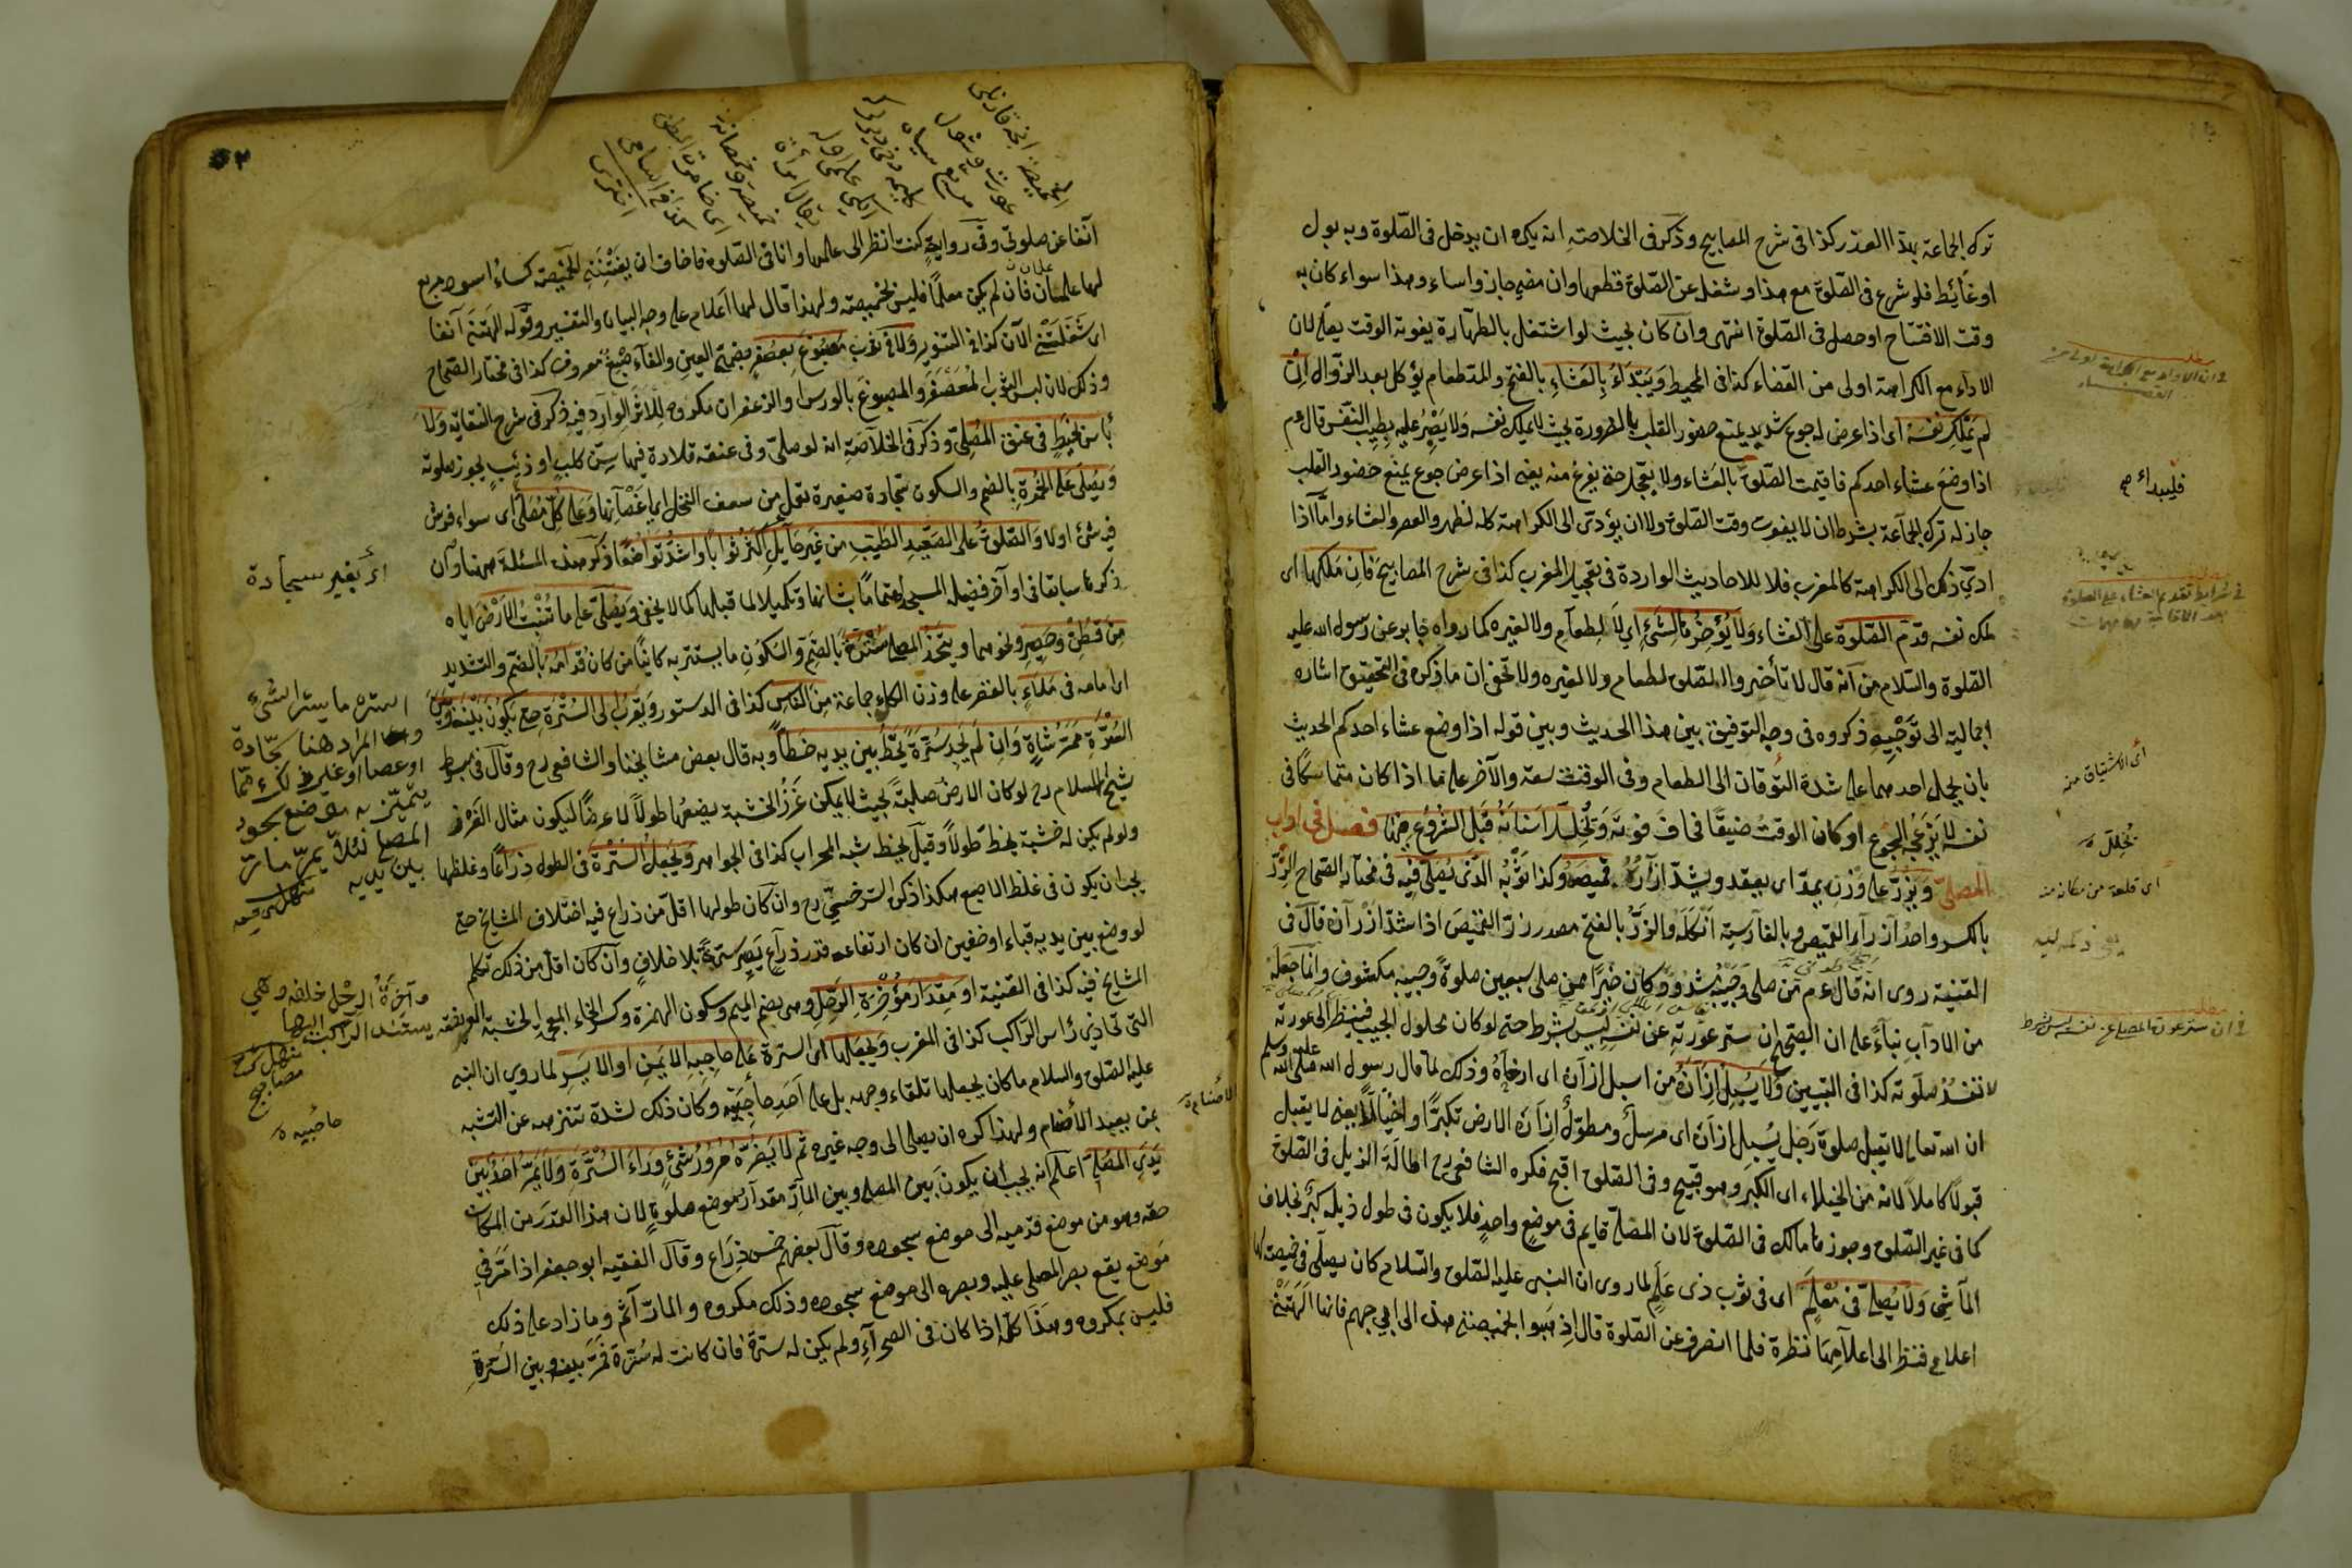 ترك الجماعة بهذا العذر كذا فى شرح المصابيح وذكر فى الخلاصة انه يكره ان يدخل فى الصّلوة وبه بول
او غائط فلو شرع فى الصّلوة مع هذا وشغله عن الصّلوة قطعها وان مضى جاز واساء وهذا سواء كان به
وقت الافتتاح او حصل فى الصّلوة انتهى وان كان بحيث لو اشتغل بالطهارة يفوته الوقت يصلى لان
الاداء مع الكراهة اولى من القضاء كذا فى المحيط وَيَبْتَدَأُ بِالعَشَاءِ بالفتح والمد طعام يؤكل بعد الزّوال اِنْ
لم يَمْلِكْ نَفْسَهُ اى اذا عرض له جوع شديد يمنع حضور القلب بالضرورة بحيث لا يملك نفسه ولا يَصْبِرُ عليه بطيب النّفس قال عم
اذا وضع عشاء احدكم فاقيمت الصّلوة بالعشاء ولا يعجل حتى يفرغ منه يعنى اذا عرض جوع يمنع حضور القلب
جاز له ترك الجماعة بشرط ان لا يفوت وقت الصّلوة ولا ان يؤدى الى الكراهة كالظهر والعصر والعشاء وامّا اذا
ادّى ذلك الى الكراهة كالمغرب فلا للاحاديث الواردة فى تعجيل المغرب كذا فى شرح المصابيح فَاِنْ مَلَكَهَا اى
ملك نفسه قدّم الصّلوة على العشاء وَلا يُؤَخِّرُهَا لِشَئٍ اى لا لطعام ولا لغيره كما رواه جابر عن رسول الله عليه
الصّلوة والسّلام من انه قال لا تأخروا الصّلوة لطعام ولا لغيره ولا تخفى ان ما ذكره فى التحقيق اشارة
اجمالية الى تَوْجِيهٍ ذكروه فى وجه التوفيق بين هذا الحديث وبين قوله اذا وضع عشاء احدكم الحديث
بان يحمل احدهما على شدة التوقان الى الطعام وفى الوقت سعة والآخر على ما اذا كان متماسكا فى
نفسه لا يُزْعِجُهُ الجوع او كان الوقت ضيقًا يخاف فوته وَيُخَلِّلُ اَسْنَانَهُ قَبْلَ الشُّرُوعِ فِيهَا فصل فى اداب
المصلى وَيَزُرُّ على وزن يمدّ اى يعقد ويشدّ ازراره قميصه وكذا ثَوْبُه الّذى يُصَلّى فِيهِ فى مختار الصّحاح الزِّرّ
بالكسر واحد ازرار القميص وبالفارسية انگله والزَّرُّ بالفتح مصدر زرّ القميص اذا شدّ ازراره قال فى
القنية روى انه قال عم من صلى وَجَيْبُهُ مَشْدُودٌ كان خَيْرًا ممن صلى سبعين صلوة وجيبه مكشوف وانّما جعله
من الاداب بناءً على ان الصّحيح ان ستر عورته عن نفسه ليس بشرط حتى لو كان محلول الجيب فينظر الى عورته
لا تفسد صلوته كذا فى التبيين وَلا يُسْبِلُ اِزَارَهُ من اسبل ازاره اى ارخاه وذلك لما قال رسول الله صلى الله عليه وسلم
ان الله تعالى لا يقبل صلوة رَجلٍ يُسبل ازارَه اى مرسل ومطوّل ازاره الى الارض تكبّرًا واختيالًا يعنى لا يقبل
قبولًا كاملًا لانه من الخيلاء اى الكبر وهو قبيح وفى الصّلوة اقبح فكره الشافعى رح اطالة الذيل فى الصّلوة
كما فى غير الصّلوة وجوز مالك فى الصّلوة لان المصلّى قايم فى موضع واحد فلا يكون فى طول ذيله كِبْر بخلاف
المآشى وَلا يُصَلّى فى مُعْلَمٍ اى فى ثوب ذى عَلَمٍ لما روى ان النبى عليه الصّلوة والسّلام كان يصلّى فى خميصة لها
اعلام فنظر الى اعلامها نظرة فلما انصرف عن الصّلوة قال اذهبوا بخميصتى هذه الى ابى جهم فانها الهتنى
فليبداء صح
اى الاشتياق منه
يُخَلِّلَ ه
اى قلعة من مكانه منه
فى ان ستر عورة المصلى عن نفسه ليس بشرط
آنفًا عن صلوتى وفى رواية كنت انظر الى علمها وانا فى الصّلوة فاخاف ان يفتننى الخميصة كساء اسود مربع
لها علمان فان لم يكن معلمًا فليس بخميصة ولهذا قال لها اعلام على وجه البيان والتفسير وقوله الهتنى آنفا
اى شَغَلَتْنِى الآن كذا فى التنوير وَلا فى ثوبٍ مَصْبُوغٍ بِعصْفُرٍ بضمتى العين والفاء صبغ معروف كذا فى مختار الصّحاح
وذلك لان لبس الثوب المُعَصْفَر والمصبوغ بالورس والزعفران مكروه للاثر الوارد فيه ذكر فى شرح النقاية وَلا
بأس بخيطٍ فى عنق المُصَلّى وذكر فى الخلاصة انه لو صلى وفى عنقه قلادة فيها سِنّ كلب او ذئب يجوز صلوته
وَيُصَلّى عَلَى الخُمْرةِ بالضم والسكون سجادة صغيرة تعمل من سعف النخل اى اغصانها وَعَلى كلّ مُصَلًّى اى سواء فرش
فيه شئ اولا وَالصّلوةُ على الصّعِيدِ الطّيّبِ من غَيْرِ حَايِلٍ اكثرُ ثوابًا واشدّ تواضعًا ذكر هذه المسئلة ههنا وان
ذكرها سابقا فى اواخر فضيلة المسجد اهتمامًا بشانها وتكميلا لما قبلها كما لا يخفى وَيُصَلّى على ما تُنْبِتُ الاَرْضُ اياه
مِنْ قُطْنٍ وَحَصِيرٍ ونحوهما ويتّخذُ المصلّى سُتْرَةً بالضّم والسّكون ما يستتر به كائنًا من كان قُدّامَهُ بالضّم والتشديد
اى امامه فى مَلاءٍ بالقصر على وزن الكلاء جماعة مِنَ النّاس كذا فى الدستور وَيَقْرُبُ الى السُّتْرَةِ حتى يَكُونَ بَيْنَهُ وَبَيْنَ
السُّتْرَةِ مَمَرّ شَاةٍ وَاِن لَمْ يَجِدْ سُتْرَةً يَخُطُّ بين يديه خَطًّا وبه قال بعض مشايخنا والشافعى رح وقال فى مبسوط
شيخ الاسلام رح لو كان الارض صلبةً بحيث لا يمكن غرز الخشبة يضعها طولاً لا عرضًا ليكون مثال الغرز
ولو لم يكن له خشبة يخط طولاً وقيل يخط شبه المحراب كذا فى الجواهر وَيَجْعَلُ السُّتْرَةَ فى الطول ذِراعًا وغلظها
يجب ان يكون فى غلظ الاصبع هكذا ذكره السّرخسىّ رح وان كان طولها اقلّ من ذراع فيه اختلاف المشايخ حتى
لو وضع بين يديه قباء او خفين ان كان ارتفاعه قدر ذراع يصير سترة بلا خلاف وان كان اقل من ذلك تكلم
المشايخ فيه كذا فى القنية او مِقْدَار مُؤْخِرَةِ الرَّحْلِ وهى بضم الميم وسكون الهمزة وكسر الخاء المعجمة الخشبة العريضة
التى تحاذى رأس الراكب كذا فى المغرب وَيَجْعَلُها اى السترة عَلى حَاجِبِهِ الايمنِ او الايسرِ لما روى ان النبى
عليه الصّلوة والسلام ما كان يجعلها تلقاء وجهه بل على اَحَدِ حَاجِبَيْه وكان ذلك لشدة تنزهه عن التشبه
بمن يعبد الأصنام ولهذا كره ان يصلى الى وجه غيره ثم لا يَضُرّهُ مُرُورُ شَئٍ وَرَاءَ السُّتْرَةِ وَلا يَمُرّ اَحَدٌ بَيْنَ
يَدَىِ المُصَلّى اعلم انه يجب ان يكون بَين المصلى وبين المارّ مقدار موضع صلوته لان هذا القدر من المكان
حقه وهو من موضع قدميه الى موضع سجوده وقال بعضهم خمس ذِرَاع وقال الفقيه ابو جعفر اذا مَرّ فى
مَوضع يقع بصر المصلى عليه وبصره الى موضع سجوده وذلك مكروه والمارّ آثم وما زاد على ذلك
فليس بمكروه وهَذا كله اذا كان فى الصحرآءِ ولم يكن له سترة فان كانت له سُترة فمرّ بينه وبين السّترة
اى بغير سجادة
السترة ما يستر الشئ
والمراد هنا سجّادة
او عصا او غير ذلك مما
يتميّز به موضع سجود
المصلى لئلا يمرّ مارّ
بين يديه
وآخرةُ الرحل خلافه وهى
يستند الراكب اليها
مصابيح
حاجبيه ه
الأصنام ه